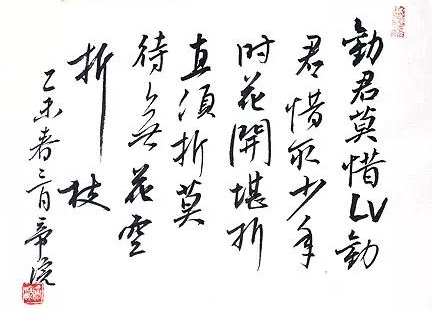 勸君莫惜LV勸
君惜取少年
时花開堪折
直須折莫
待無花空
折枝
乙未春三月